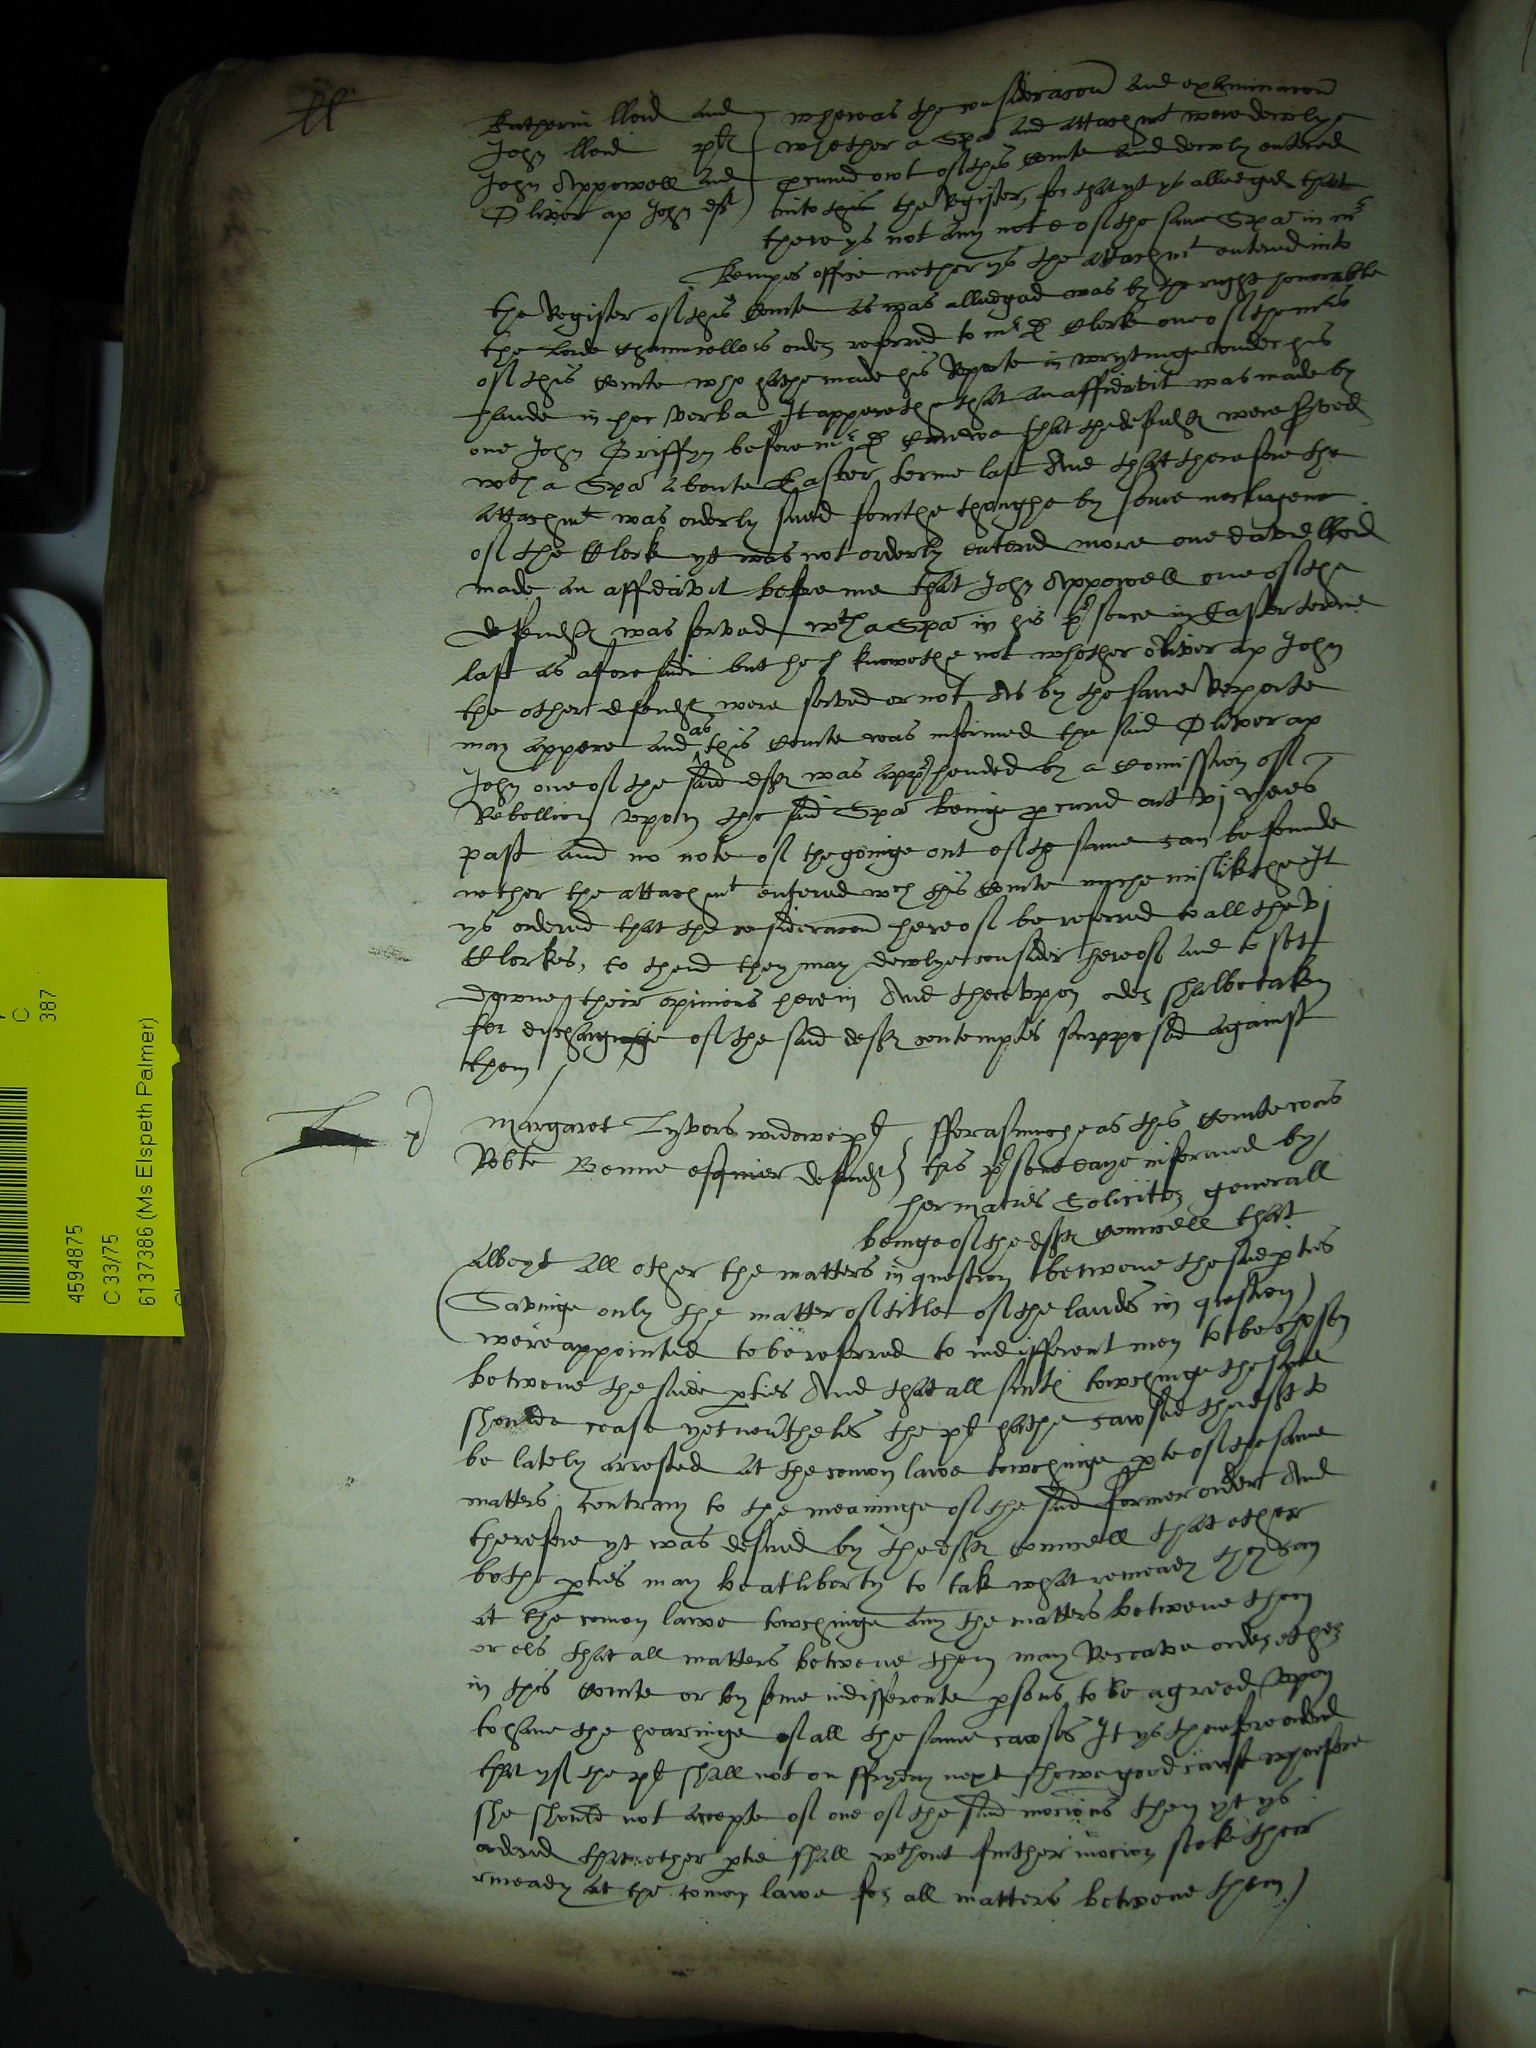 ll
Katherin lloid and
John lloid plt
John Appowell and
Oliver ap John deft
whereas the consideracon and examinacon
whether a Spa and attachmt were dewlye
procured owt of this Courte and dewly entered
into this the Register, for that yt ys alledged that
there ys not any note of the same Spa in mr
Kempes office nether ys the attachmt entered into
the Register of this Courte as was alledged was by the right honorable
the Lorde Chauncellors order referred to mr D Clerke one of the mrs
of this Courte who hathe made his Reporte in wrytinge under his
hande in hec verba It apperethe that an affidavit was made by
one John Griffyn before mr D that the defendts were served
wth a Spa aboute Easter terme last And that therefore the
attachmt was orderly sued fourthe thoughe by some necligence
of the Clerk yt was not orderly entered more one david lloid
made an affidavit before me that John Appowell one of the
defendts was served wth a Spa in his presence in Easter terme
last as aforesaid but he knowethe not whether Oliver ap John
the other defendt were served or not As by the same Reporte
may appere and as this Courte was informed the said Oliver ap
John one of the said defts was apprhended by a Comission of
Rebellion upon the said Spa beinge procured out vj yeres
past and no note of the goinge out of the same can be founde
nether the attachmt entered wch this Courte myche mislikethe It
ys ordered that the consideracon hereof be referred to all the vj
Clerkes, to thend they may dewlye consider hereof and to sett
downe their opinions herein And thereupon order shalbe taken
for discharginge of the said defts contemptes supposed against
them
Margaret Tyvers widowe plt
Robte Bonne esquier defendt
fforasmuche as this Courte was
this present daye informed by
her maties Solicitor generall
beinge of the defts Councell that
Albeyt all other the matters in question betwene the said parties
(Savinge only the matter of title of the landes in question)
were appointed to be referred to indifferent men to be chosen
betwene the saide parties And that all suits towchinge the same
shoulde cease yet nevertheles the plt hathe cawsed the deft to
be lately arrested at the comon lawe towchinge parte of the same
matters contrary to the meaninge of the said former order And
therefore yt was desired by the defts Councell that ether
bothe parties may be at liberty to tak what remeady they can
at the comon lawe towchinge any the matters betwene them
or els that all matters betwene them may Receave order ether
in this Courte or by some indifferente persons to be agreed upon
to have the hearinge of all the same cawses It ys therefore ordered
that yf the plt shall not on ffryday next shewe good cawse wherefore
she should not accepte of one of the said mocions then yt ys
ordered that ether partie shall wthout further mocion seeke their
remeady at the comon lawe for all matters betwene them)
C
387
4594875
C 33/75
6137386 (Ms Elspeth Palmer)